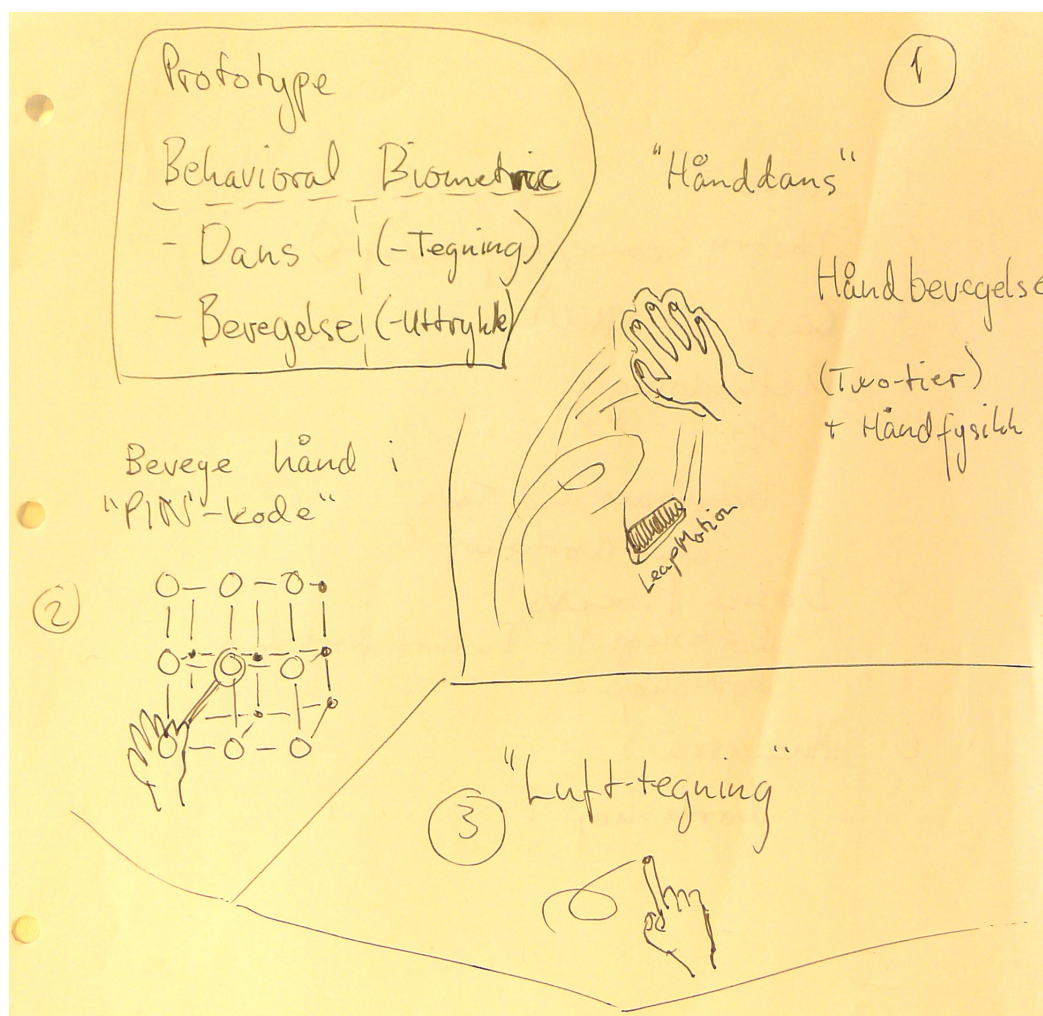 Prototype
Behavioral Biometric
- Dans (-Tegning)
- Bevegelse (-Uttrykk)
1
"Hånddans"
Håndbevegelse
(Two-tier)
+ Håndfysikk
LeapMotion
Bevege hånd i
"PIN"-kode"
2
3
"Luft-tegning"